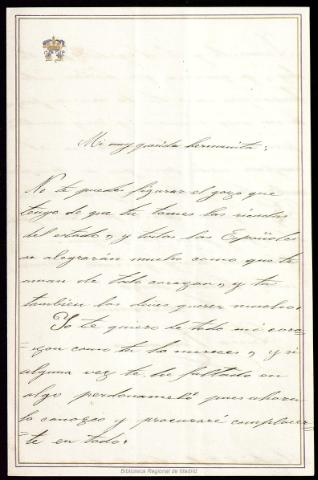 Mi muy querida hermanita:
No te puedes figurar el gozo que
tengo de que tú tomes las riendas
del estado, y todos los Españoles
se alegrarán mucho como que te
aman de todo corazon, y tu
tambien les dices quieres mucho.
Yo te quiero de todo mi cora-
zon como tu lo mereces, y si
alguna vez te he faltado en
algo perdonamelo pues ahora
lo conozco y procuraré complacer-
=te en todo.
Biblioteca Regional de Madrid